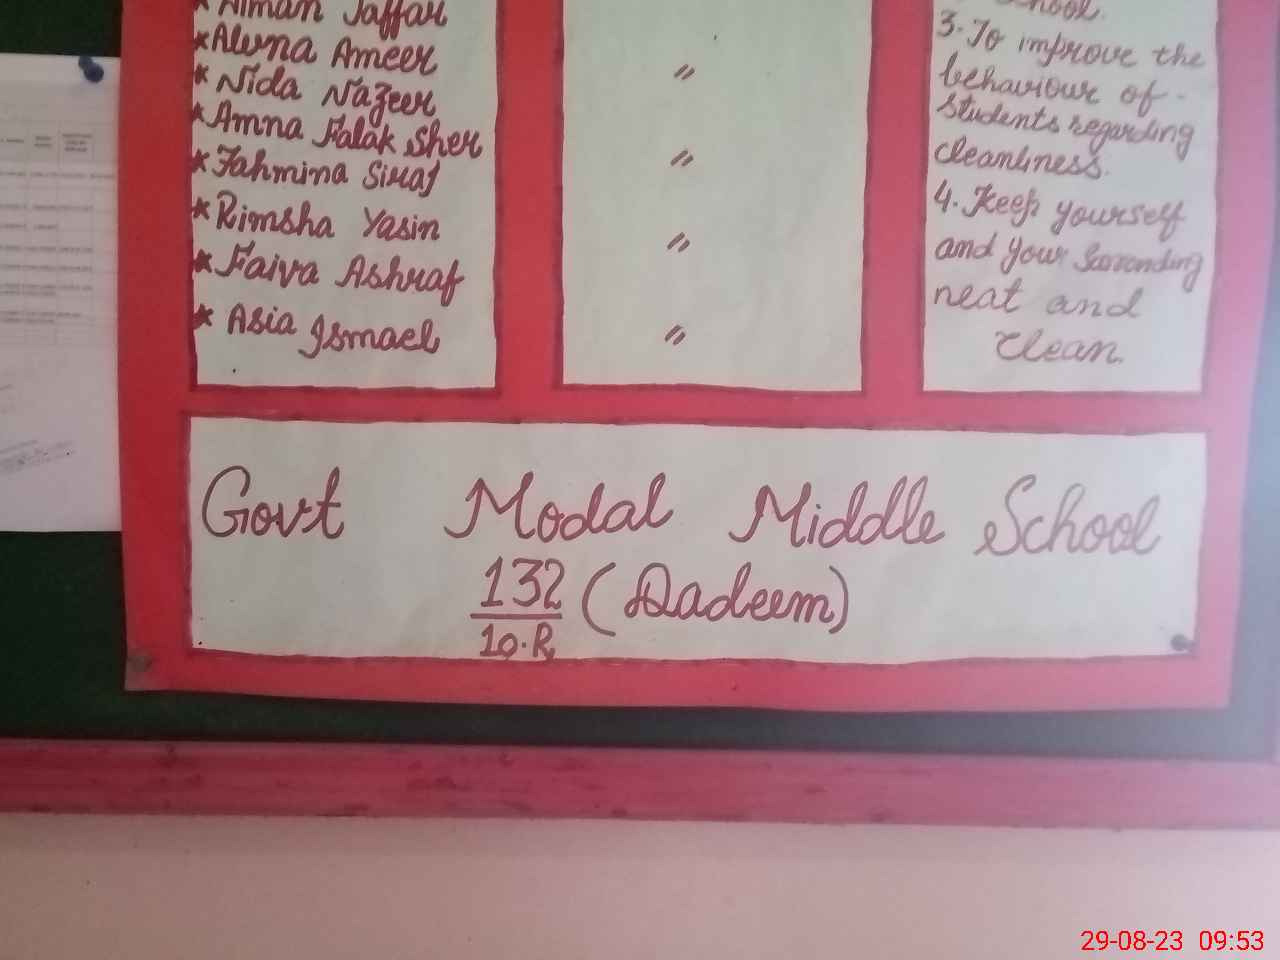 * Aiman Jaffar
* Alena Ameer
* Nida Nazeer
* Amna Falak Sher
* Fahmina Siraj
* Rimsha Yasin
* Faiva Ashraf
* Asia Ismael
〃
〃
〃
〃
School.
3. To improve the
behaviour of -
students regarding
cleanliness.
4. Keep yourself
and your Surronding
neat and
clean.
Govt Modal Middle School
132 (Qadeem)
10.R
29-08-23 09:53